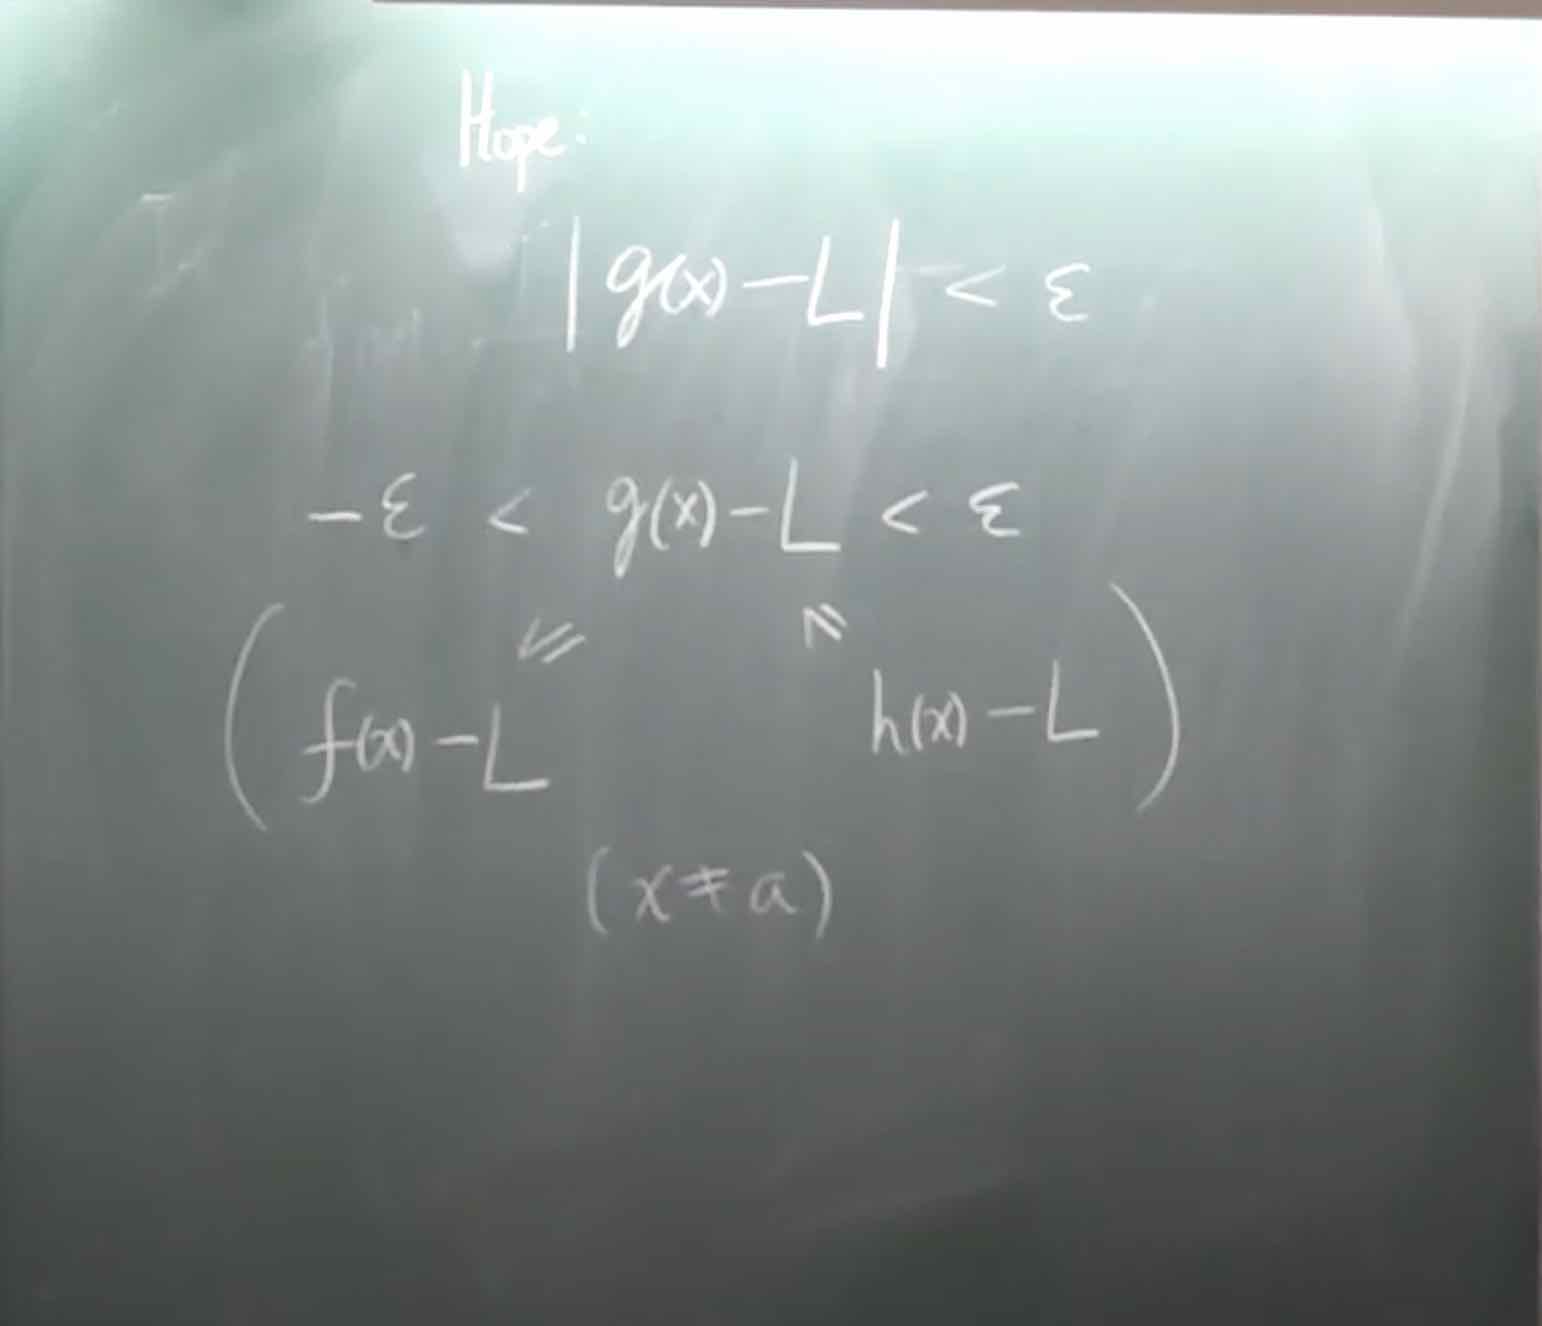 Hope:
|g(x)-L| < ε
-ε < g(x)-L < ε
≤ ≤
(f(x)-L h(x)-L)
(x≠a)